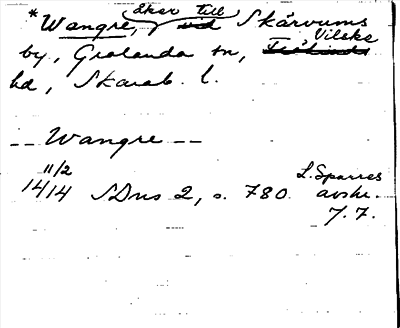 *Wangre, åker till Skärvums
by, Grolanda sn, Vilske
hd, Skarab. l.
-- Wangre --
11/2
1414 SDns 2, s. 780. L. Sparres
avskr.
7.7.